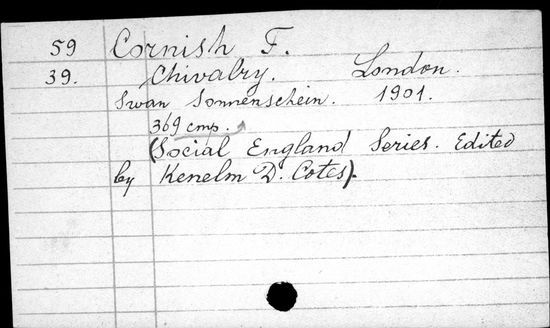 59 Cornish F.
39. Chivalry. London.
Swan Sonnenschein. 1901.
369 стр.
(Social England Series. Edited
by Kenelm D. Cotes).